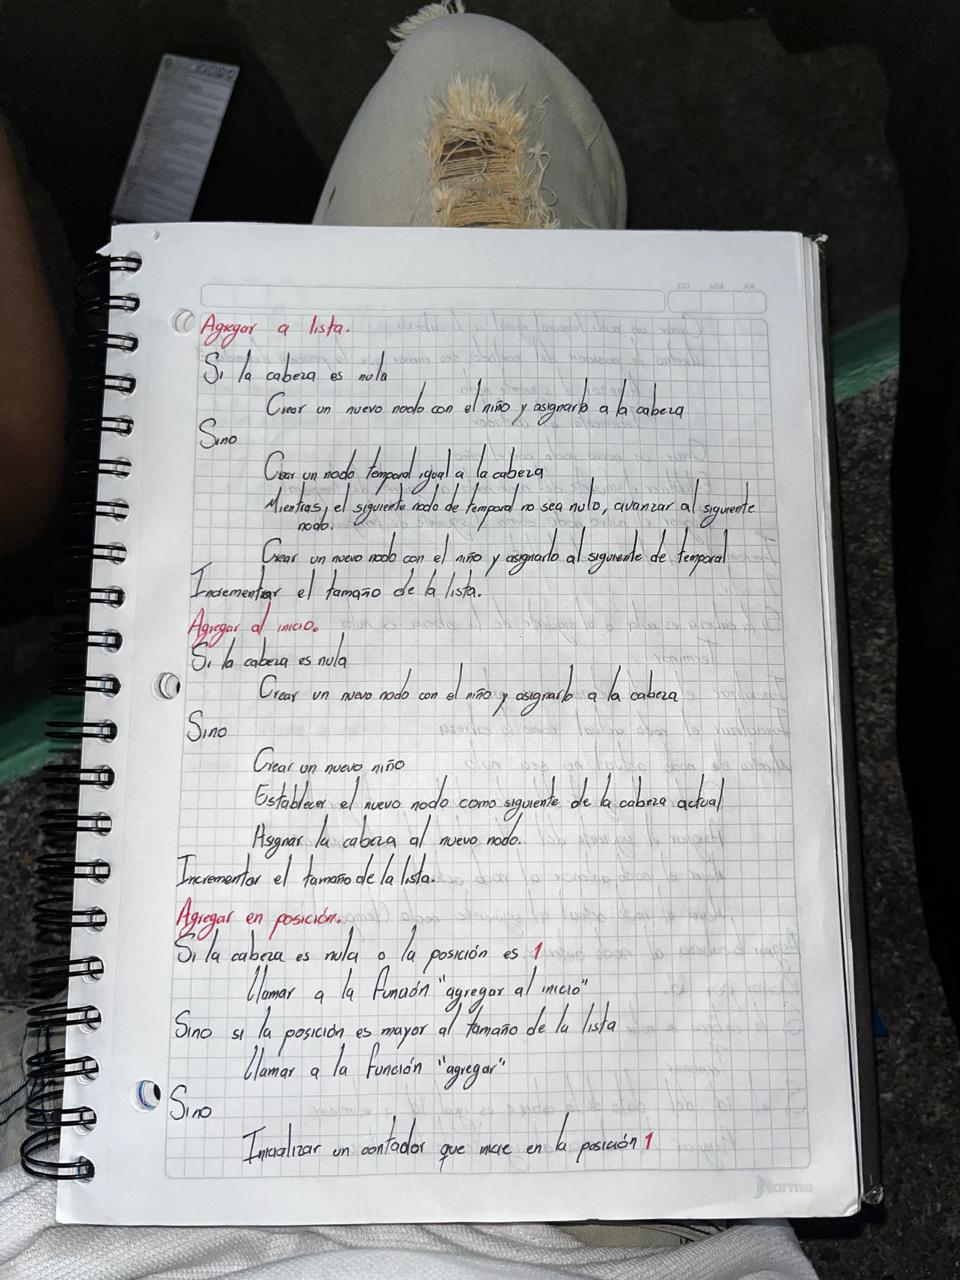 Agregar a lista.
Si la cabeza es nula
Crear un nuevo nodo con el niño y asignarlo a la cabeza
Sino
Crear un nodo temporal igual a la cabeza
Mientras, el siguiente nodo de temporal no sea nulo, avanzar al siguiente
nodo.
Crear un nuevo nodo con el niño y asignarlo al siguiente de temporal
Incrementar el tamaño de la lista.
Agregar al inicio.
Si la cabeza es nula
Crear un nuevo nodo con el niño y asignarlo a la cabeza
Sino
Crear un nuevo niño
Establecer el nuevo nodo como siguiente de la cabeza actual
Asignar la cabeza al nuevo nodo.
Incrementar el tamaño de la lista.
Agregar en posición.
Si la cabeza es nula o la posición es 1
Llamar a la función "agregar al inicio"
Sino si la posición es mayor al tamaño de la lista
Llamar a la función "agregar"
Sino
Inicializar un contador que inicie en la posición 1
Norma